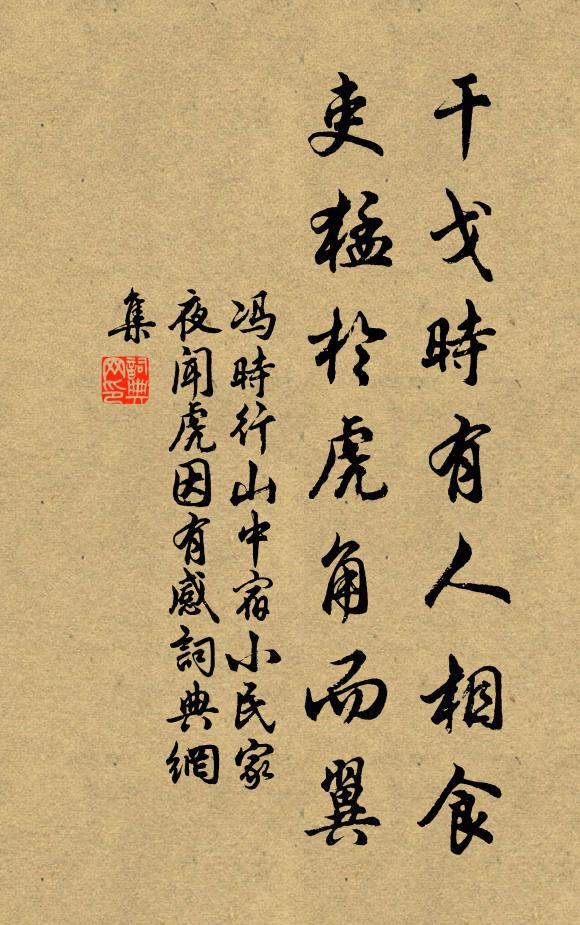 干戈時有人相食
吏猛於虎角而翼
冯時行山中宿小民家
夜闻虎因有感詞典網
集
詞典
网印